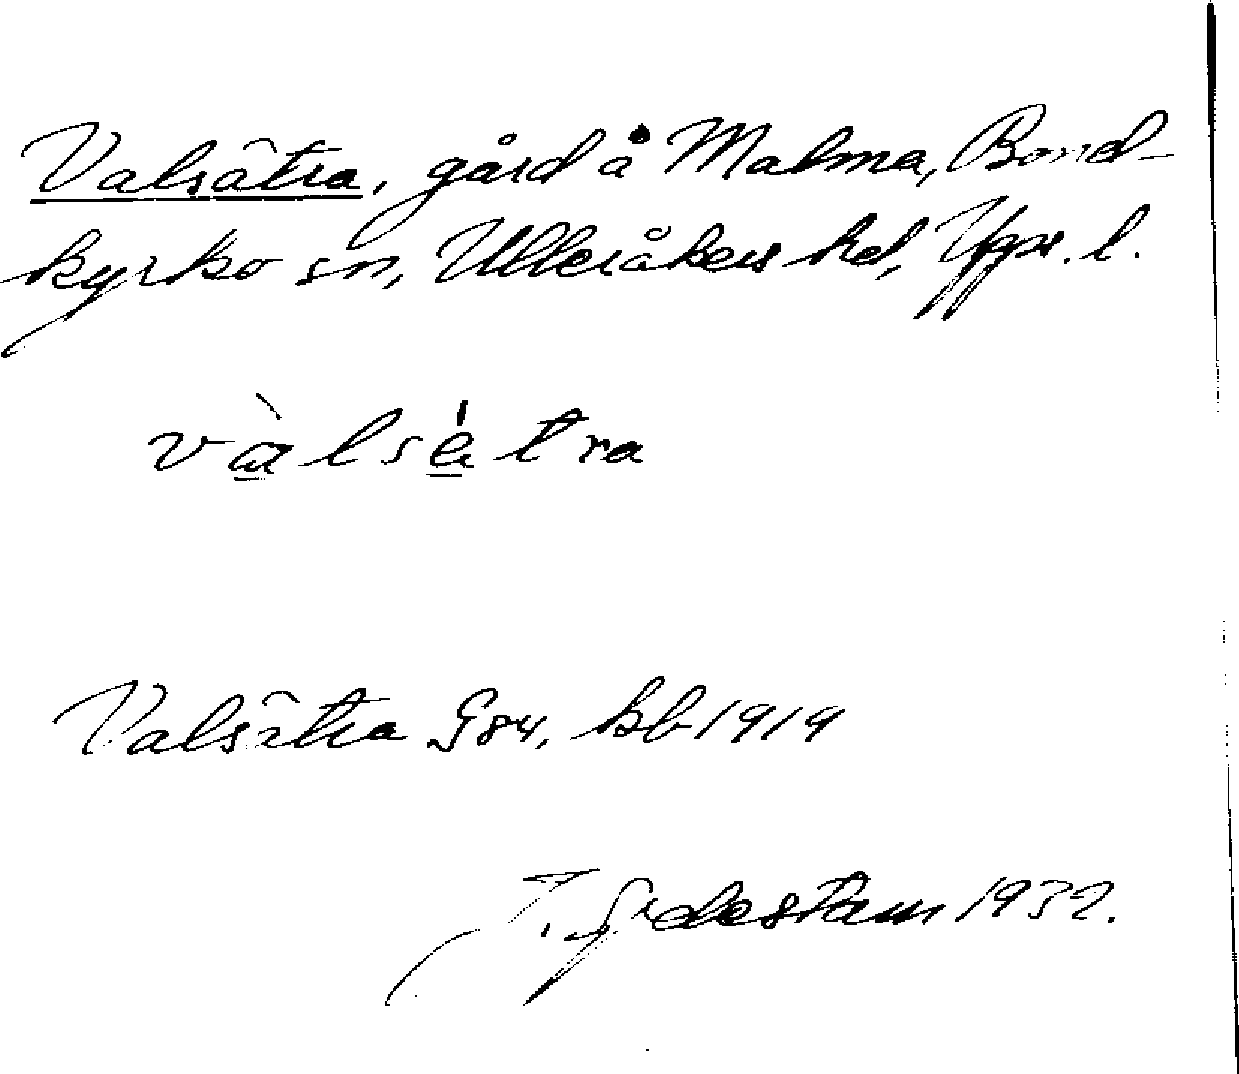 Valsätra, gård å Malma, Bond-
kyrko sn, Ulleråkers hd, Upps. l.
vàlsätra
Valsätra G84, kb 1919
1932.